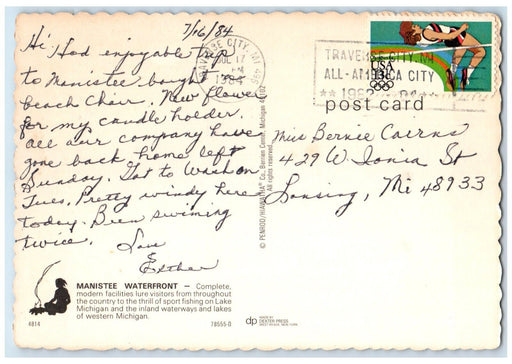 7/16/84
Hi Had enjoyable trip
to Manistee bought
beach chair. New flower
for my candle holder.
all our company have
gone back home left
Sunday. Got to Wash on
Tues. Pretty windy here
today. Been swiming
twice.
Love
&
Esther
MANISTEE WATERFRONT — Complete,
modern facilities lure visitors from throughout
the country to the thrill of sport fishing on Lake
Michigan and the inland waterways and lakes
of western Michigan.
4814
78555-D
© PENROD/HIAWATHA Co., Berrien Center, Michigan 49102
All rights reserved
TRAVERSE CITY, MI 496
JUL 17
1984
TRAVERSE CITY, MI
ALL-AMERICA CITY
USA
13c
post card
Miss Bernie Cairns
429 W Ionia St
Lansing, Mi 48933
dp
MADE BY
DEXTER PRESS
WEST NYACK, NEW YORK